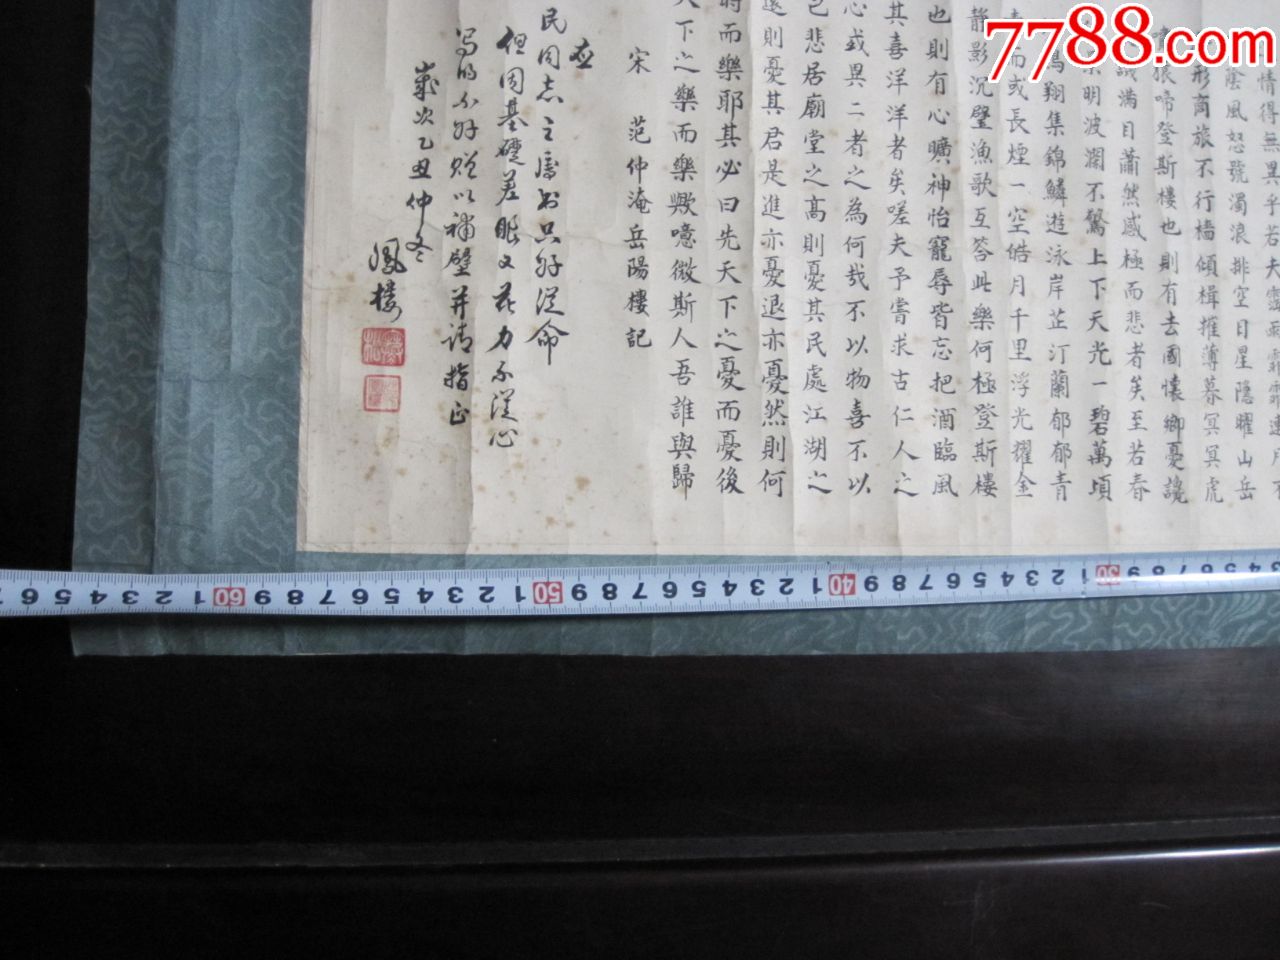 7788.com
情得無異乎若夫霪雨霏霏連月不
陰風怒號濁浪排空日星隱曜山岳
形商旅不行檣傾楫摧薄暮冥冥虎
旅啼登斯樓也則有去國懷鄉憂讒
譏滿目蕭然感極而悲者矣至若春
景明波瀾不驚上下天光一碧萬頃
鳥翔集錦鱗遊泳岸芷汀蘭郁郁青
青而或長煙一空皓月千里浮光耀金
靜影沉璧漁歌互答此樂何極登斯樓
也則有心曠神怡寵辱皆忘把酒臨風
其喜洋洋者矣嗟夫予嘗求古仁人之
心或異二者之為何哉不以物喜不以
己悲居廟堂之高則憂其民處江湖之
遠則憂其君是進亦憂退亦憂然則何
時而樂耶其必曰先天下之憂而憂後
天下之樂而樂歟噫微斯人吾誰與歸
宋 范仲淹岳陽樓記
应
民同志之属书只好从命
但因基礎差眼又花力不从心
写的不好赠以補壁并请指正
歲次乙丑仲冬
鳳樓
7 6 5 4 3 2 1 60 9 8 7 6 5 4 3 2 1 50 9 8 7 6 5 4 3 2 1 40 9 8 7 6 5 4 3 2 1 30 9 8 7 6 5 4 3